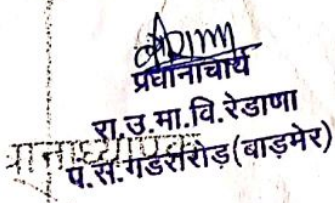 प्रधानाचार्य
रा.उ.मा.वि.रेडाणा
प.स.गडरारोड़(बाड़मेर)